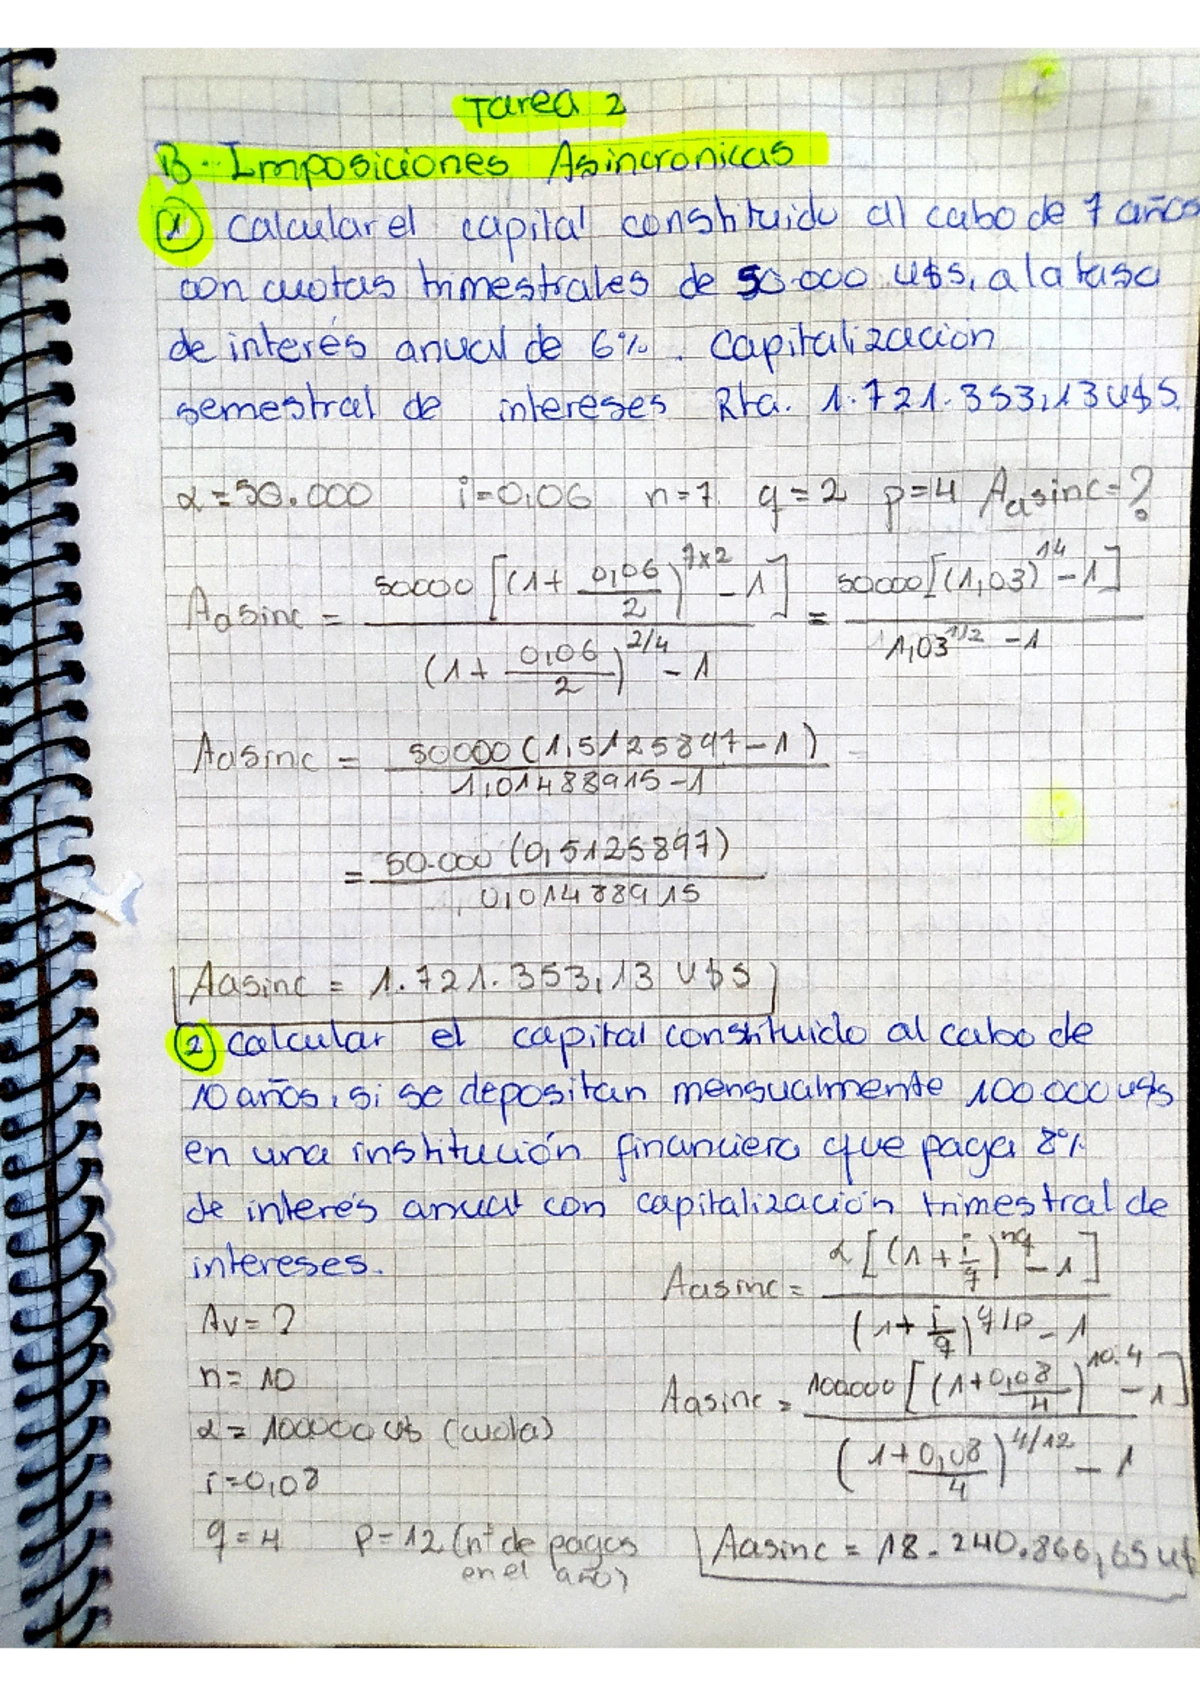 Tarea 2
B. Imposiciones Asincronicas
1) Calcular el capital constituido al cabo de 7 años
con cuotas trimestrales de 50.000 U$S, a la tasa
de interés anual de 6%. Capitalización
semestral de intereses Rta. 1.721.353,13 U$S.
α=50.000 i=0,06 n=7. q=2 p=4 Aasinc=?
Aasinc = 50000 [(1+ 0,06/2)^7x2 - 1] / (1+ 0,06/2)^2/4 - 1 = 50000 [(1,03)^14 - 1] / 1,03^1/2 - 1
Aasinc = 50000 (1,5125897 - 1) / 1,01488915 - 1
= 50.000 (0,5125897) / 0,01488915
Aasinc = 1.721.353,13 U$S
2) Calcular el capital constituido al cabo de
10 años, si se depositan mensualmente 100.000 U$S
en una institución financiera que paga 8%
de interés anual con capitalización trimestral de
intereses.
Aasinc = α [(1+ i/q)^nq - 1] / (1+ i/q)^q/p - 1
Av=?
n=10
Aasinc = 100000 [(1+ 0,08/4)^10.4 - 1] / (1+ 0,08/4)^4/12 - 1
α = 100000 U$ (cuota)
i=0,08
q=4 p=12 (n° de pagos
en el año)
Aasinc = 18.240.866,65 U$